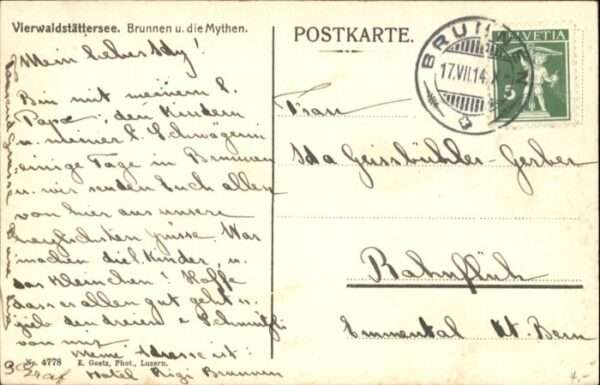 Vierwaldstättersee. Brunnen u. die Mythen.
POSTKARTE.
BRUNNEN
17.VII.14.X
HELVETIA
5
Mein liebes Idy!
Bin mit meinem l.
Papa, den Kindern
u. meiner l. Schwägerin
einige Tage in Brunnen
u. wir senden Euch allen
von hier aus unsere
herzlichsten Grüsse. Was
machen die l. Kinder, u.
das Kleinchen? Hoffe
dass es allen gut geht u.
gieb den dreien e Schmützli
von mir
Meine Adresse ist:
Hotel Rigi Brunnen
Frau
Ida Geissbühler-Gerber
Bahnflüh
Emmental Kt. Bern
No. 4778 E. Goetz, Phot., Luzern.